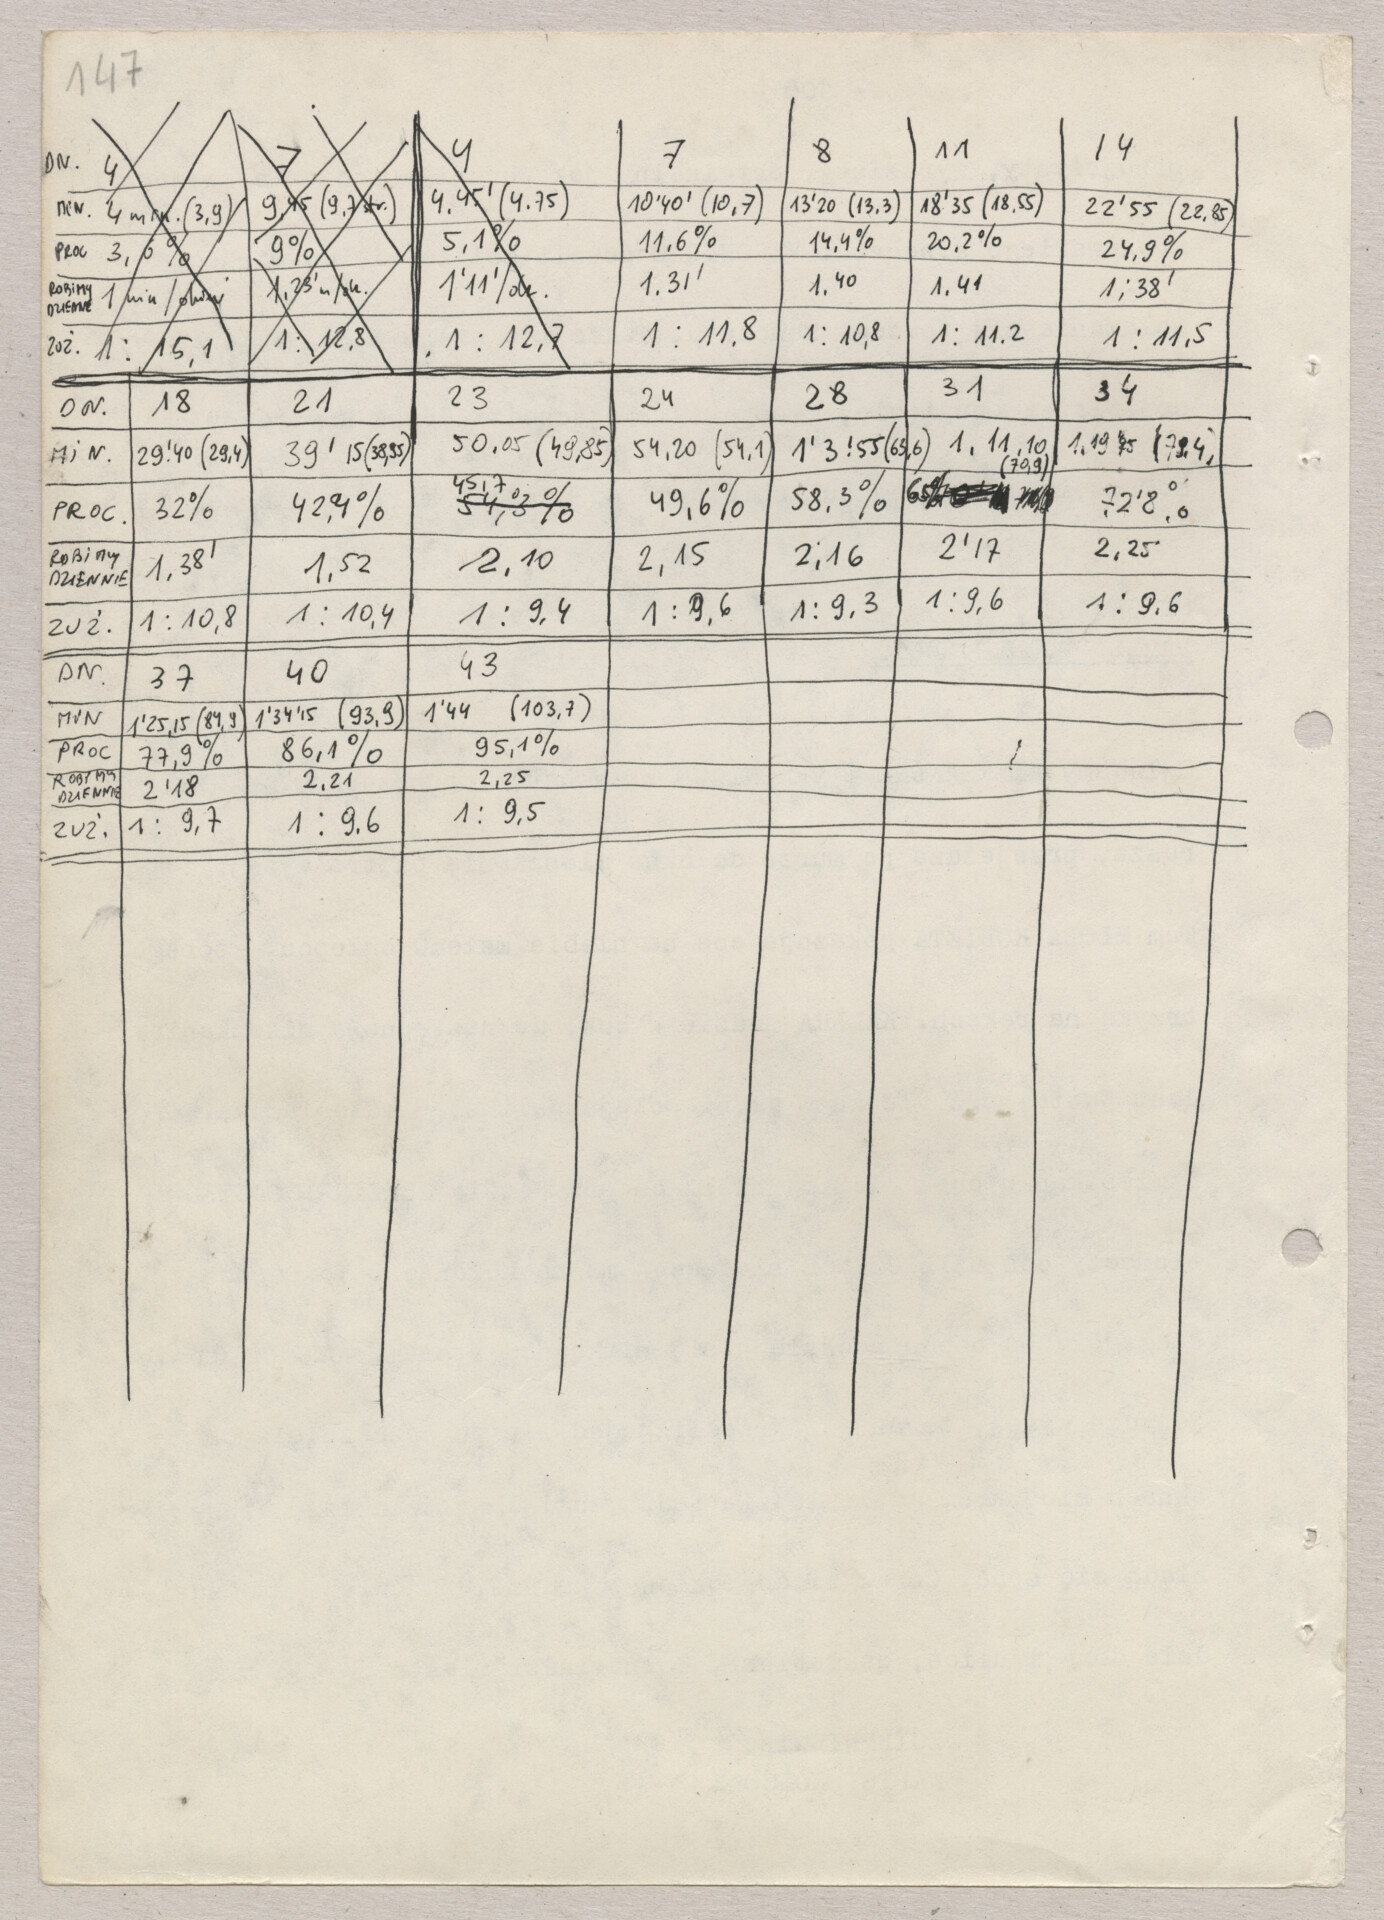 147
DN. 4 7 4 7 8 11 14
MIN. 4 min. (3,9) 9,45 (9,7 str.) 4.45' (4.75) 10'40' (10,7) 13'20 (13,3) 18'35 (18,55) 22'55 (22,85)
PROC 3,6% 9% 5,1% 11,6% 14,4% 20,2% 24,9%
ROBIMY DZIENNIE 1 min / 1,23' 1'11' 1.31' 1.40 1.41 1;38'
ZUŻ. 1: 15,1 1: 12,8 1: 12,7 1: 11,8 1: 10,8 1: 11.2 1: 11,5
DN. 18 21 23 24 28 31 34
MIN. 29'40 (29,4) 39'15 (38,95) 50.05 (49,85) 54,20 (54,1) 1'3'55 (63,6) 1.11,10 (70,9) 1.19 (79,4)
PROC. 32% 42,4% 45,7 54,3% 49,6% 58,3% 65% 72'8%
ROBIMY DZIENNIE 1,38' 1,52 2,10 2,15 2,16 2'17 2,25
ZUŻ. 1: 10,8 1: 10,4 1: 9,4 1: 9,6 1: 9,3 1: 9,6 1: 9,6
DN. 37 40 43
MIN 1'25,15 (84,9) 1'34'15 (93,9) 1'44 (103,7)
PROC 77,9% 86,1% 95,1%
ROBIMY DZIENNIE 2'18 2,21 2,25
ZUŻ. 1: 9,7 1: 9,6 1: 9,5